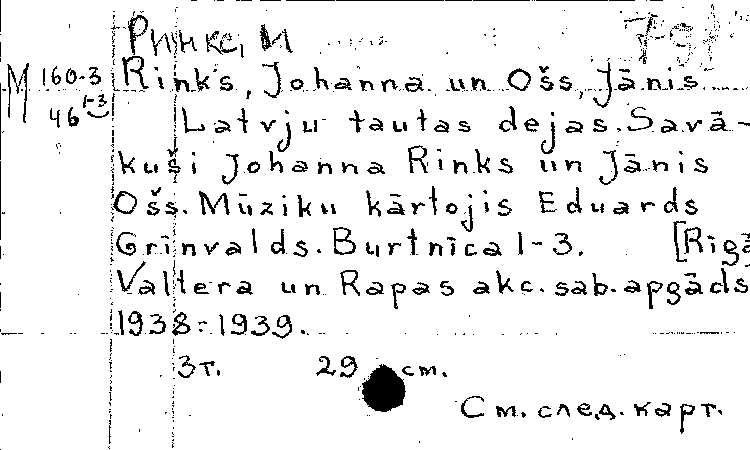 Ринкс, И
М 160-3 Rinks, Johanna un Ošs, Jānis
46 1-3
Latvju tautas dejas. Savā-
kuši Johanna Rinks un Jānis
Ošs. Mūziku kārtojis Eduards
Grīnvalds. Burtnīca 1-3. [Rigā
Valtera un Rapas akc. sab. apgāds
1938-1939.
3т. 29 см.
См. след. карт.